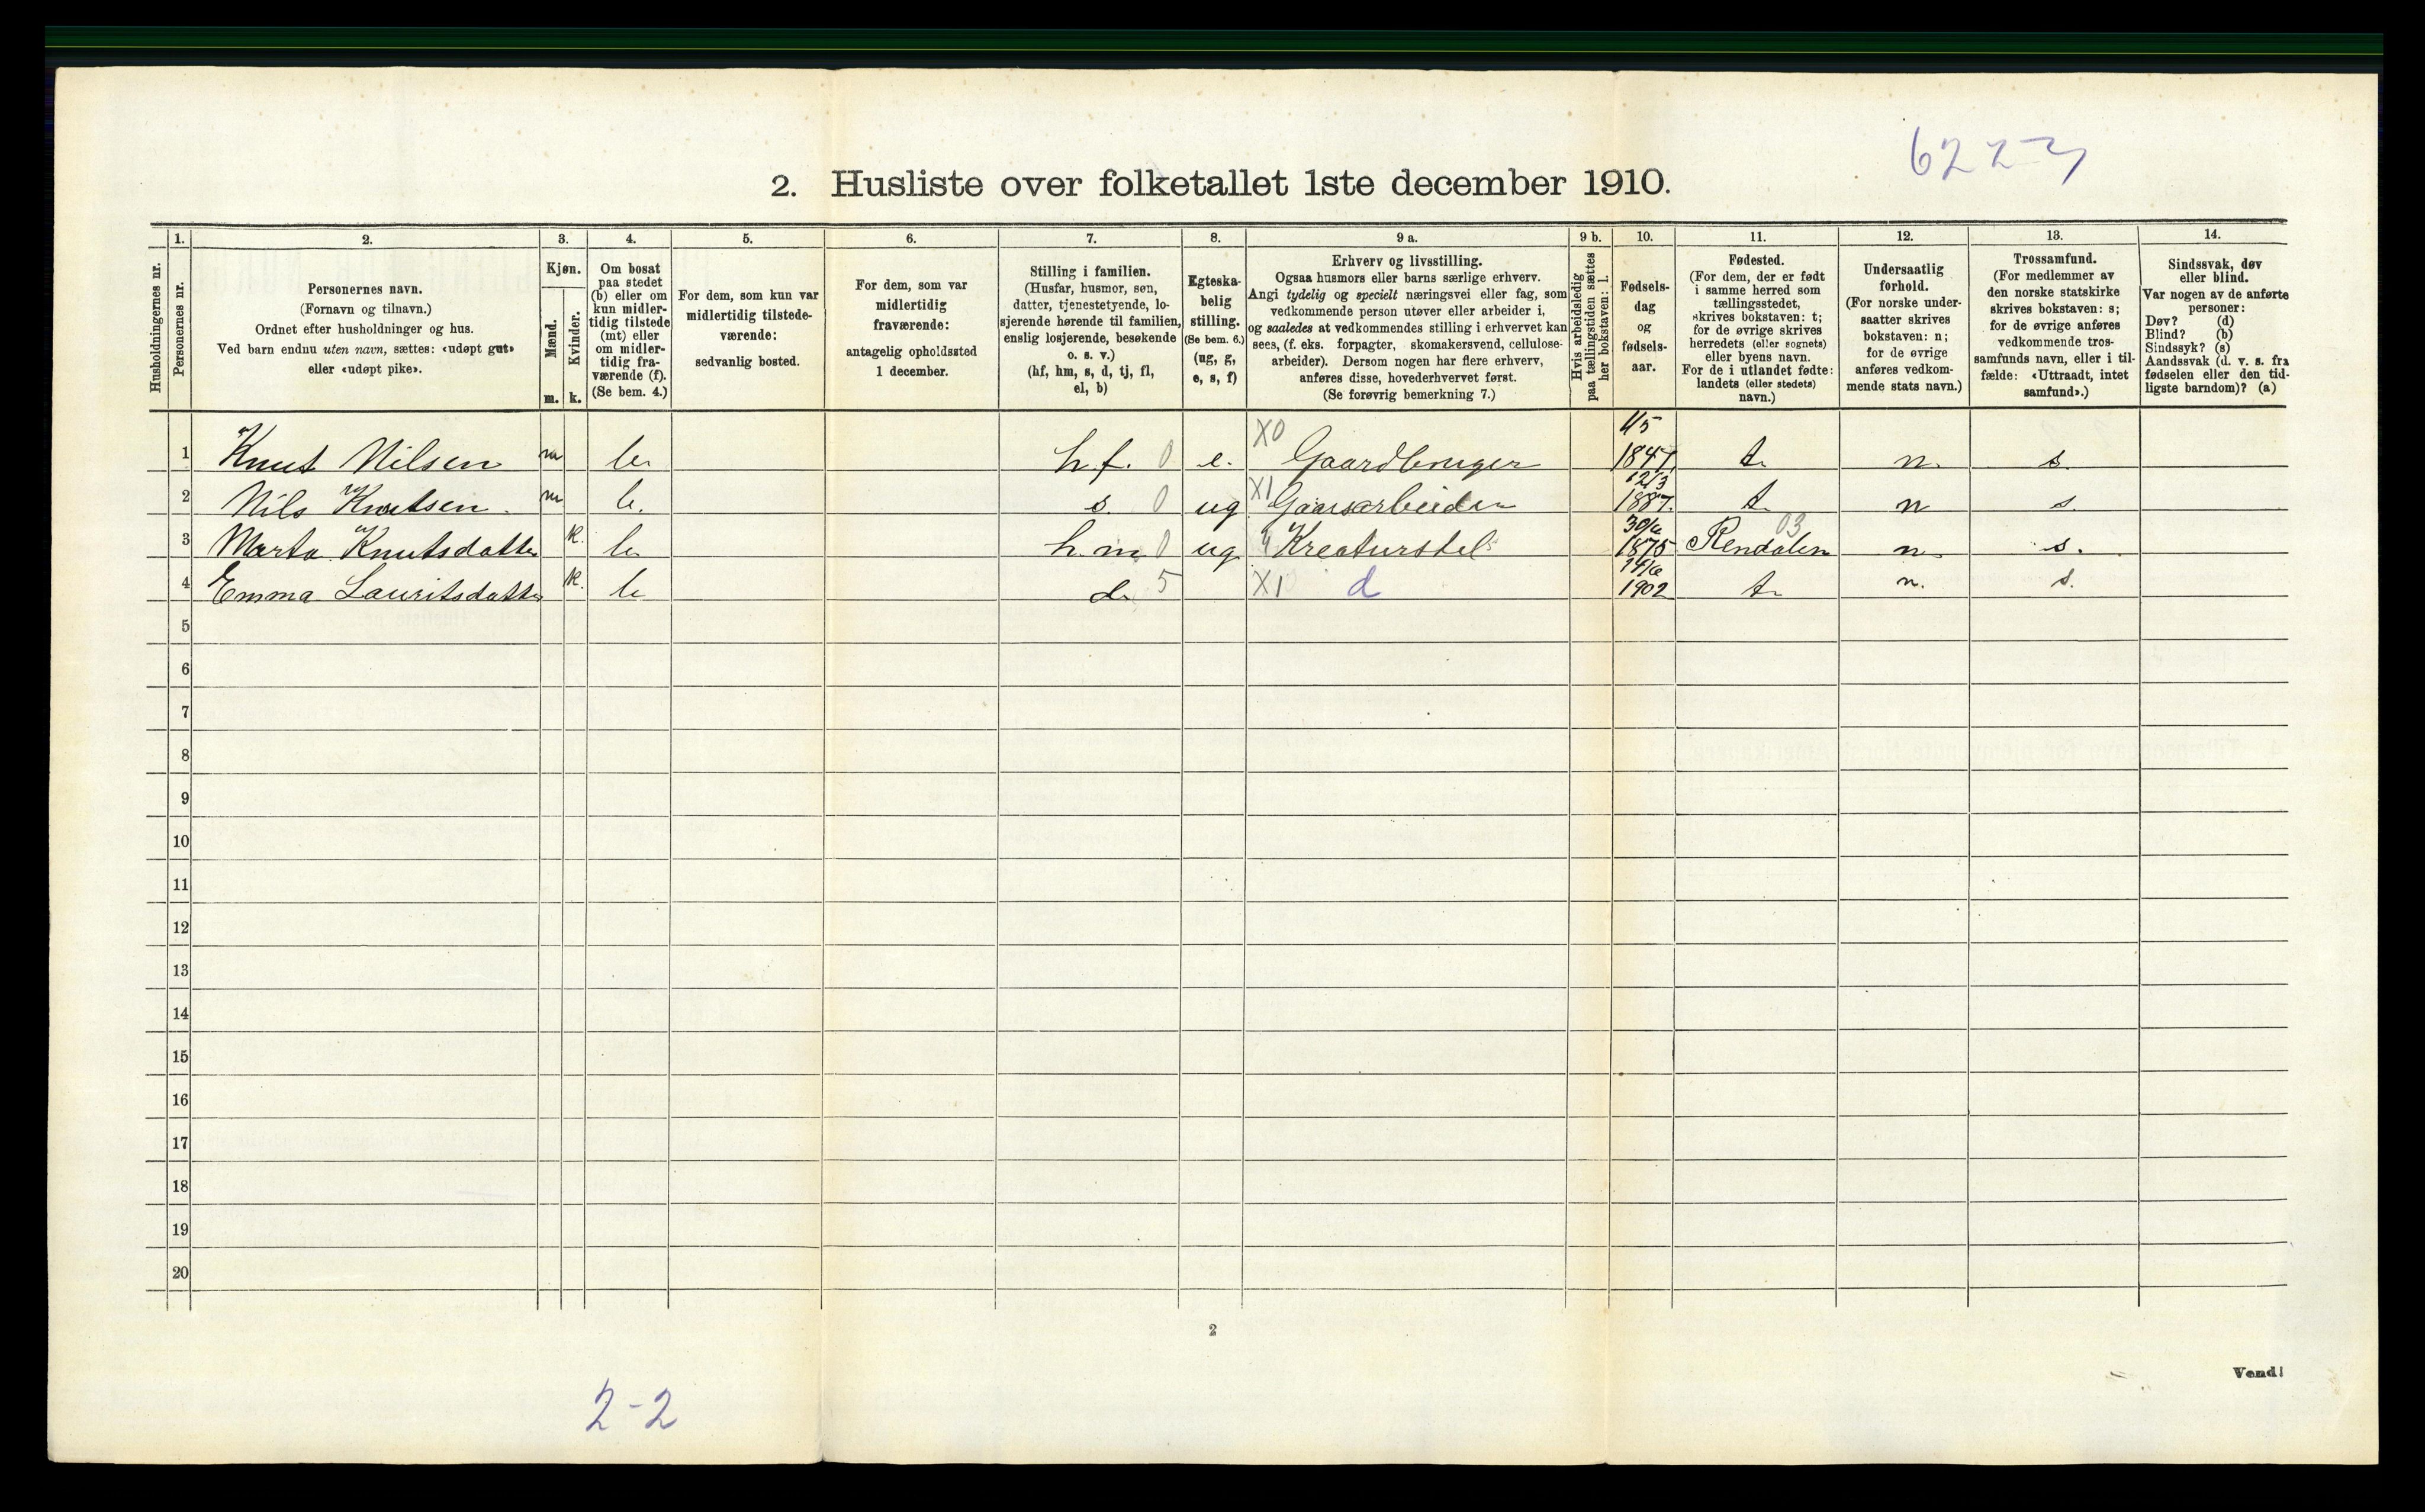 6223
2. Husliste over folketallet 1ste december 1910.
Husholdningernes nr.
1.
Personernes nr.
2.
Personernes navn.
(Fornavn og tilnavn.)
Ordnet efter husholdninger og hus.
Ved barn endnu uten navn, sættes: «udøpt gut»
eller «udøpt pike».
3.
Kjøn.
Mænd.
Kvinder.
m. k.
4.
Om bosat
paa stedet
(b) eller om
kun midler-
tidig tilstede
(mt) eller
om midler-
tidig fra-
værende (f).
(Se bem. 4.)
5.
For dem, som kun var
midlertidig tilstede-
værende:
sedvanlig bosted.
6.
For dem, som var
midlertidig
fraværende:
antagelig opholdssted
1 december.
7.
Stilling i familien.
(Husfar, husmor, søn,
datter, tjenestetyende, lo-
sjerende hørende til familien,
enslig losjerende, besøkende
o. s. v.)
(hf, hm, s, d, tj, fl,
el, b)
8.
Egteska-
belig
stilling.
(Se bem. 6.)
(ug, g,
e, s, f)
9 a.
Erhverv og livsstilling.
Ogsaa husmors eller barns særlige erhverv.
Angi tydelig og specielt næringsvei eller fag, som
vedkommende person utøver eller arbeider i,
og saaledes at vedkommendes stilling i erhvervet kan
sees, (f. eks. forpagter, skomakersvend, cellulose-
arbeider). Dersom nogen har flere erhverv,
anføres disse, hovederhvervet først.
(Se forøvrig bemerkning 7.)
9 b.
Hvis arbeidsledig
paa tællingstiden sættes
her bokstaven: l.
10.
Fødsels-
dag
og
fødsels-
aar.
11.
Fødested.
(For dem, der er født
i samme herred som
tællingsstedet,
skrives bokstaven: t;
for de øvrige skrives
herredets (eller sognets)
eller byens navn.
For de i utlandet fødte:
landets (eller stedets)
navn.)
12.
Undersaatlig
forhold.
(For norske under-
saatter skrives
bokstaven: n;
for de øvrige
anføres vedkom-
mende stats navn.)
13.
Trossamfund.
(For medlemmer av
den norske statskirke
skrives bokstaven: s;
for de øvrige anføres
vedkommende tros-
samfunds navn, eller i til-
fælde: «Uttraadt, intet
samfund».)
14.
Sindssvak, døv
eller blind.
Var nogen av de anførte
personer:
Døv? (d)
Blind? (b)
Sindssyk? (s)
Aandssvak (d. v. s. fra
fødselen eller den tid-
ligste barndom)? (a)
1 Knut Nilsen m b. h.f. 0 e. X0 Gaardbruger 1847. t. n. s.
2 Nils Knutsen. m b. s. 0 ug X1 Gaarsarbeider 12/3 1887. t. n s.
3 Marta Knutsdatter k. b. h.m 0 ug Kreaturstel 30/6 1875 Rendalen 03 n. s.
4 Emma Lauritsdatter k. b d. 5 X1 d 1902 t. n. s.
5
6
7
8
9
10
11
12
13
14
15
16
17
18
19
20
2
Vend!
2-2